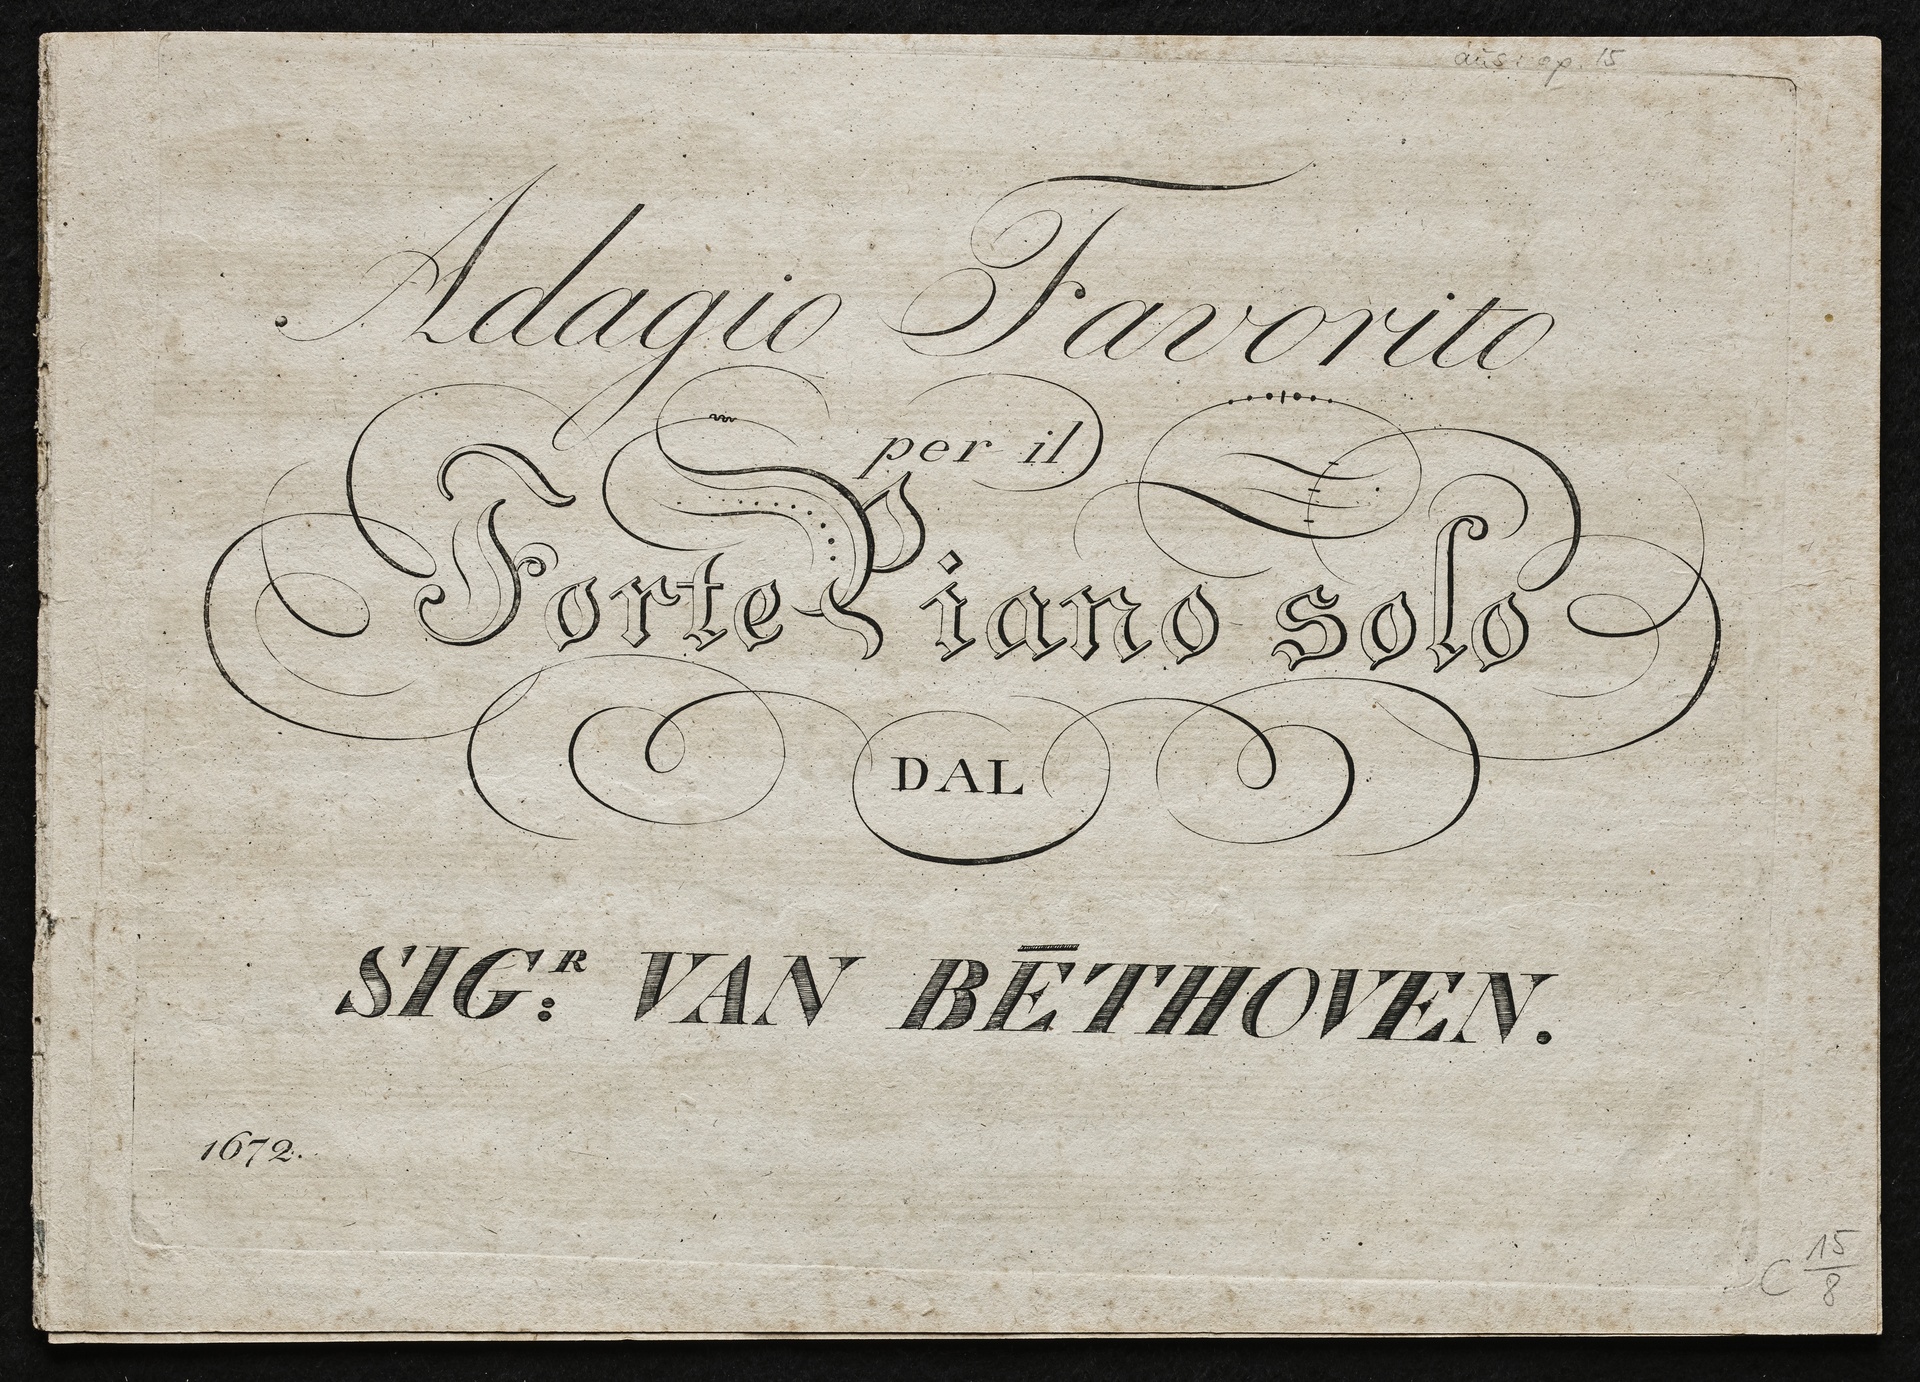 aus: op. 15
Adagio Favorito
per il
Forte Piano solo
DAL
SIG:R VAN BĒTHOVEN.
1672.
C 15/8